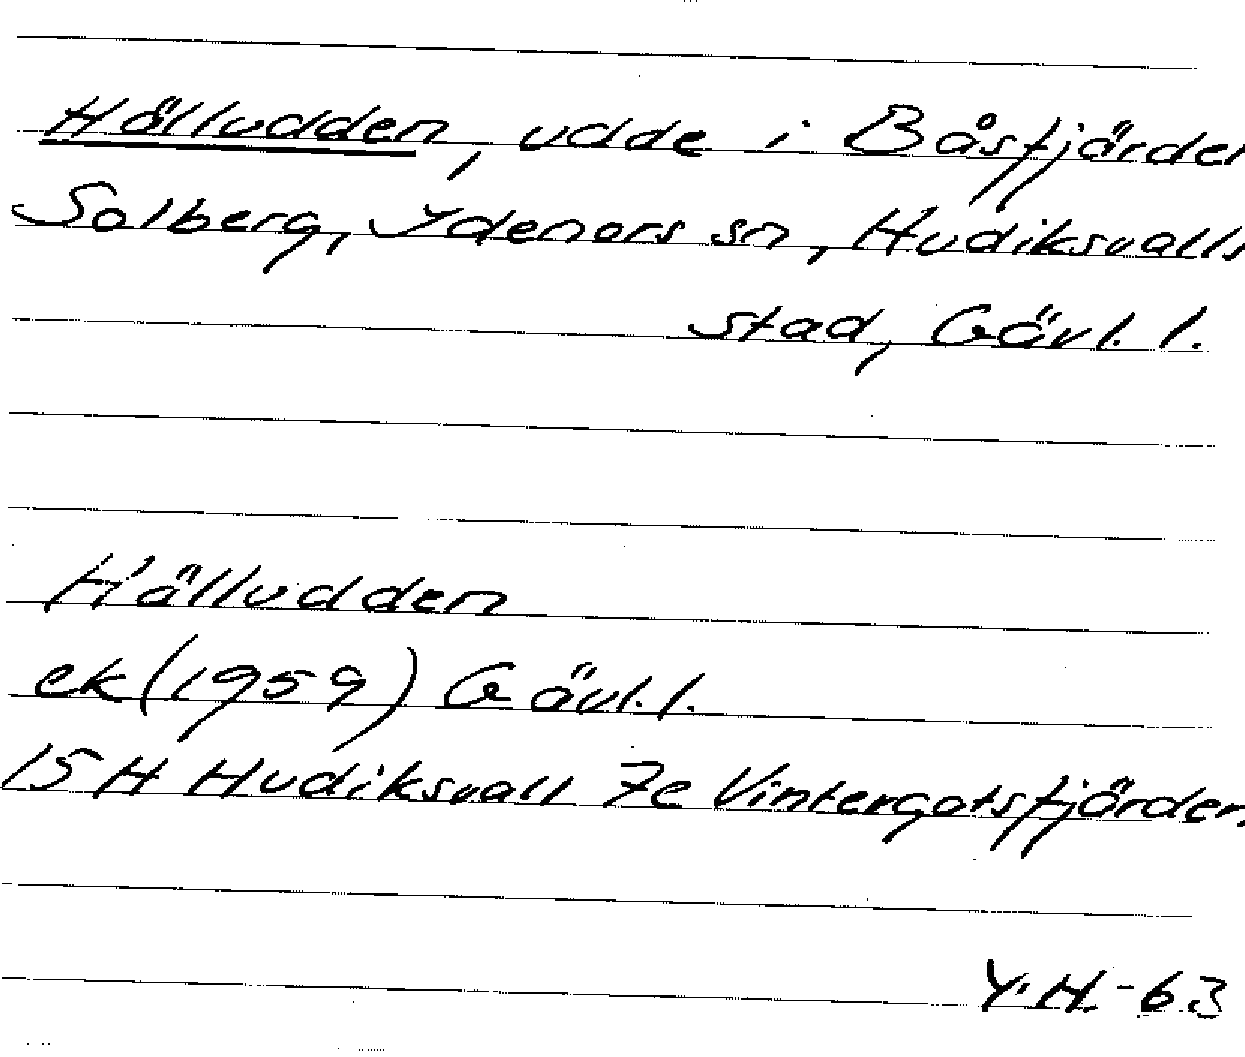 Hälludden, udde i Båsfjärden
Solberg, Idenors sn, Hudiksvalls
stad, Gävl. l.
Hälludden
ek (1959) Gävl. l.
15H Hudiksvall 7e Vintergatsfjärden
Y.H.-63